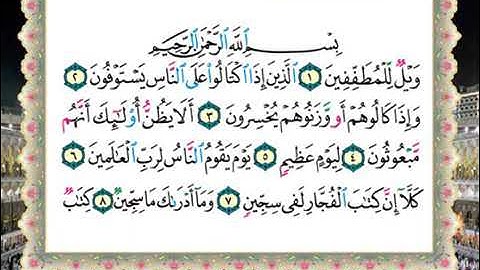 بِسْمِ ٱللَّهِ ٱلرَّحْمَٰنِ ٱلرَّحِيمِ
وَيْلٌ لِّلْمُطَفِّفِينَ ١ ٱلَّذِينَ إِذَا ٱكْتَالُوا۟ عَلَى ٱلنَّاسِ يَسْتَوْفُونَ ٢
وَإِذَا كَالُوهُمْ أَو وَّزَنُوهُمْ يُخْسِرُونَ ٣ أَلَا يَظُنُّ أُو۟لَٰٓئِكَ أَنَّهُم
مَّبْعُوثُونَ ٤ لِيَوْمٍ عَظِيمٍ ٥ يَوْمَ يَقُومُ ٱلنَّاسُ لِرَبِّ ٱلْعَٰلَمِينَ ٦
كَلَّآ إِنَّ كِتَٰبَ ٱلْفُجَّارِ لَفِى سِجِّينٍ ٧ وَمَآ أَدْرَىٰكَ مَا سِجِّينٌ ٨ كِتَٰبٌ